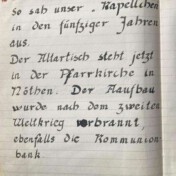 So sah unser „Kapellchen
in den fünfziger Jahren
aus.
Der Altartisch steht jetzt
in der Pfarrkirche in
Nöthen. Der Aaufbau
wurde nach dem zweiten
Weltkrieg verbrannt,
ebenfalls die Kommunion
bank